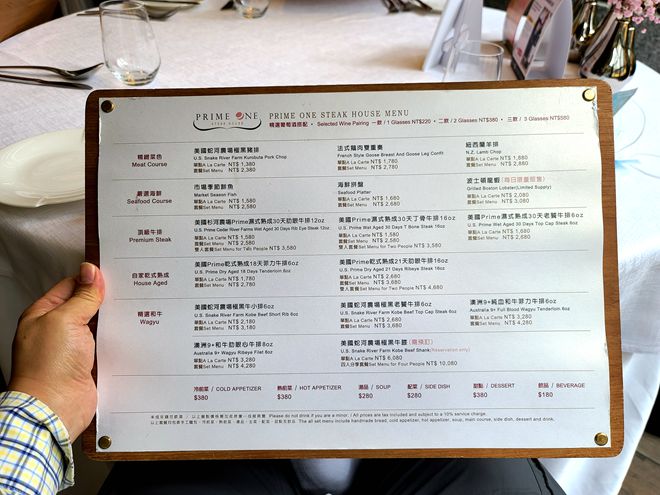 PRIME ONE
STEAK HOUSE
PRIME ONE STEAK HOUSE MENU
精選葡萄酒搭配 • Selected Wine Pairing 一款 / 1 Glasses NT$220 • 二款 / 2 Glasses NT$380 • 三款 / 3 Glasses NT$580
精緻菜色
Meat Course
美國蛇河農場極黑豬排
U.S. Snake River Farm Kurobuta Pork Chop
單點A La Carte NT$ 1,380
套餐Set Menu NT$ 2,380
法式鵝肉雙重奏
French Style Goose Breast And Goose Leg Confit
單點A La Carte NT$ 1,780
套餐Set Menu NT$ 2,780
紐西蘭羊排
N.Z. Lamb Chop
單點A La Carte NT$ 1,880
套餐Set Menu NT$ 2,880
嚴選海鮮
Seafood Course
市場季節鮮魚
Market Season Fish
單點A La Carte NT$ 1,580
套餐Set Menu NT$ 2,580
海鮮拼盤
Seafood Platter
單點A La Carte NT$ 1,680
套餐Set Menu NT$ 2,680
波士頓龍蝦(每日限量販售)
Grilled Boston Lobster(Limited Supply)
單點A La Carte NT$ 2,080
套餐Set Menu NT$ 3,080
頂級牛排
Premium Steak
美國杉河農場Prime濕式熟成30天肋眼牛排12oz
U.S. Prime Cedar River Farms Wet Aged 30 Days Rib Eye Steak 12oz
單點A La Carte NT$ 1,580
套餐Set Menu NT$ 2,580
雙人套餐Set Menu for Two People NT$ 3,580
美國Prime濕式熟成30天丁骨牛排16oz
U.S. Prime Wet Aged 30 Days T Bone Steak 16oz
單點A La Carte NT$ 1,580
套餐Set Menu NT$ 2,580
雙人套餐Set Menu for Two People NT$ 3,580
美國Prime濕式熟成30天老饕牛排6oz
U.S. Prime Wet Aged 30 Days Top Cap Steak 6oz
單點A La Carte NT$ 1,680
套餐Set Menu NT$ 2,680
自家乾式熟成
House Aged
美國Prime乾式熟成18天菲力牛排6oz
U.S. Prime Dry Aged 18 Days Tenderloin 6oz
單點A La Carte NT$ 1,780
套餐Set Menu NT$ 2,780
美國Prime乾式熟成21天肋眼牛排16oz
U.S. Prime Dry Aged 21 Days Ribeye Steak 16oz
單點A La Carte NT$ 2,680
套餐Set Menu NT$ 3,680
雙人套餐Set Menu for Two People NT$ 4,680
精選和牛
Wagyu
美國蛇河農場極黑牛小排6oz
U.S. Snake River Farm Kobe Beef Short Rib 6oz
單點A La Carte NT$ 2,180
套餐Set Menu NT$ 3,180
美國蛇河農場極黑老饕牛排6oz
U.S. Snake River Farm Kobe Beef Top Cap Steak 6oz
單點A La Carte NT$ 2,680
套餐Set Menu NT$ 3,680
澳洲9+純血和牛菲力牛排6oz
Australia 9+ Full Blood Wagyu Tenderloin 6oz
單點A La Carte NT$ 3,280
套餐Set Menu NT$ 4,280
澳洲9+和牛肋眼心牛排8oz
Australia 9+ Wagyu Ribeye Filet 8oz
單點A La Carte NT$ 3,280
套餐Set Menu NT$ 4,280
美國蛇河農場極黑牛腱(需預訂)
U.S. Snake River Farm Kobe Beef Shank(Reservation only)
單點A La Carte NT$ 6,080
四人分享套餐Set Menu for Four People NT$ 10,080
冷前菜 / COLD APPETIZER
$380
熱前菜 / HOT APPETIZER
$380
湯品 / SOUP
$280
配菜 / SIDE DISH
$280
甜點 / DESSERT
$380
飲品 / BEVERAGE
$180
Please do not drink if you are a minor. / All prices are tax included and subject to a 10% service charge.
The all set menu include handmade bread, cold appetizer, hot appetizer, soup, main course, side dish, dessert and drink.